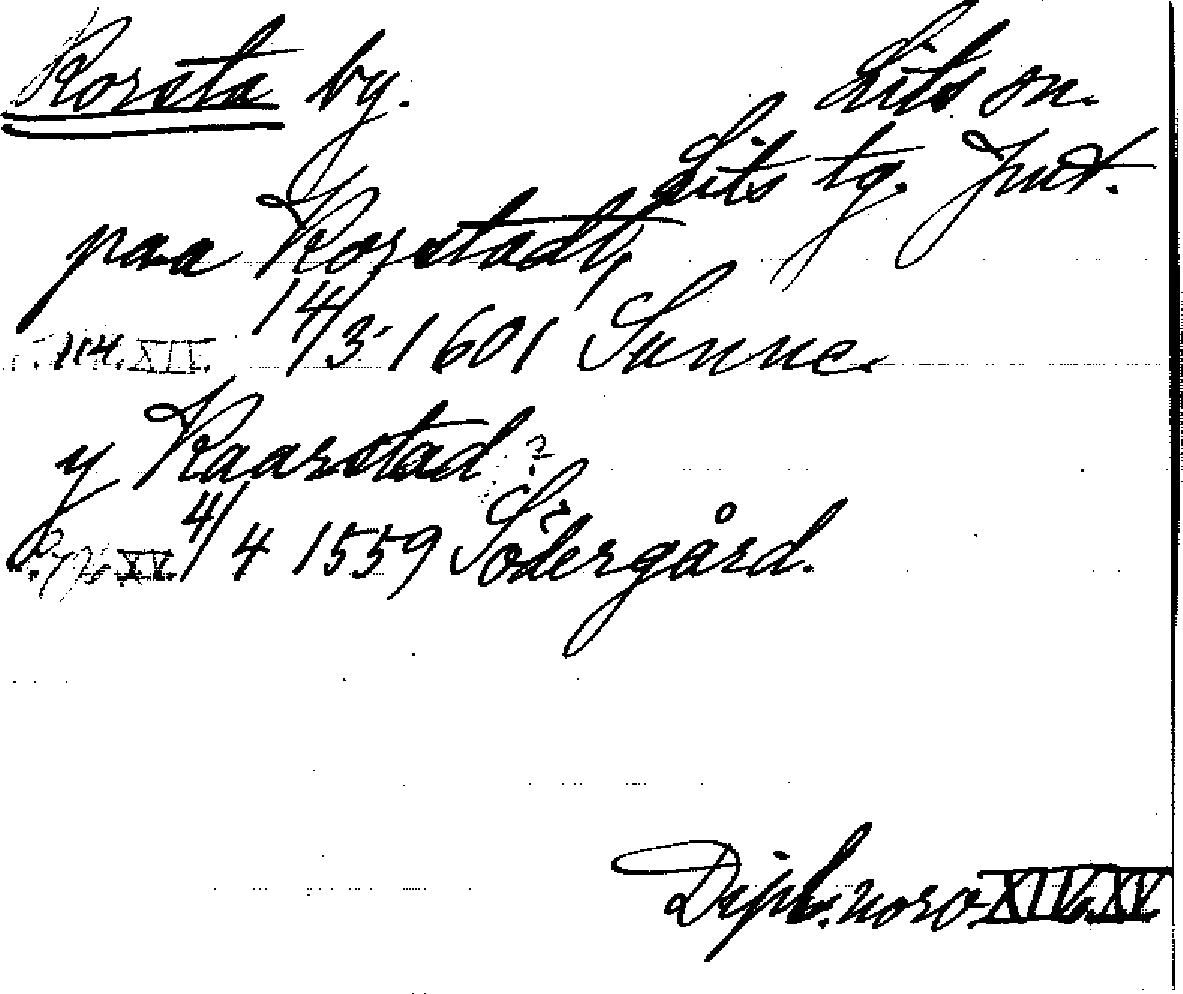 Korsta by.
Lits sn.
Lits tg. Jmt.
paa Korstadt,
114. XII. 14/3 1601 Sunne.
y Kaarstad ?
XV. 4/4 1559 Södergård.
Dipl. norv. XIV. XV.